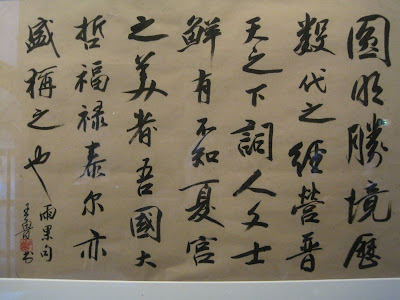 圆明勝境歷
數代之經營普
天之下詞人文士
鮮有不知夏宫
之美者吾國大
哲福禄泰尔亦
盛稱之也
雨果句